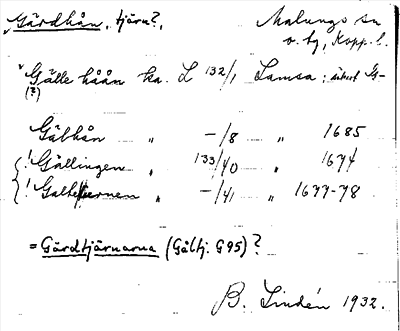 Gärdhån, tjärn?, Malungs sn
o. tg, Kopp. l.
Gälle håån ka. L 132/1 Lamsa:
(?)
Gälhån " -/8 " 1685
! Gällingen " 133/40 " 1674
! Galhetiernen " -/41 " 1677-78
= Gärdtjärnarna (Gåltj. G95)?
B. Lindén 1932.